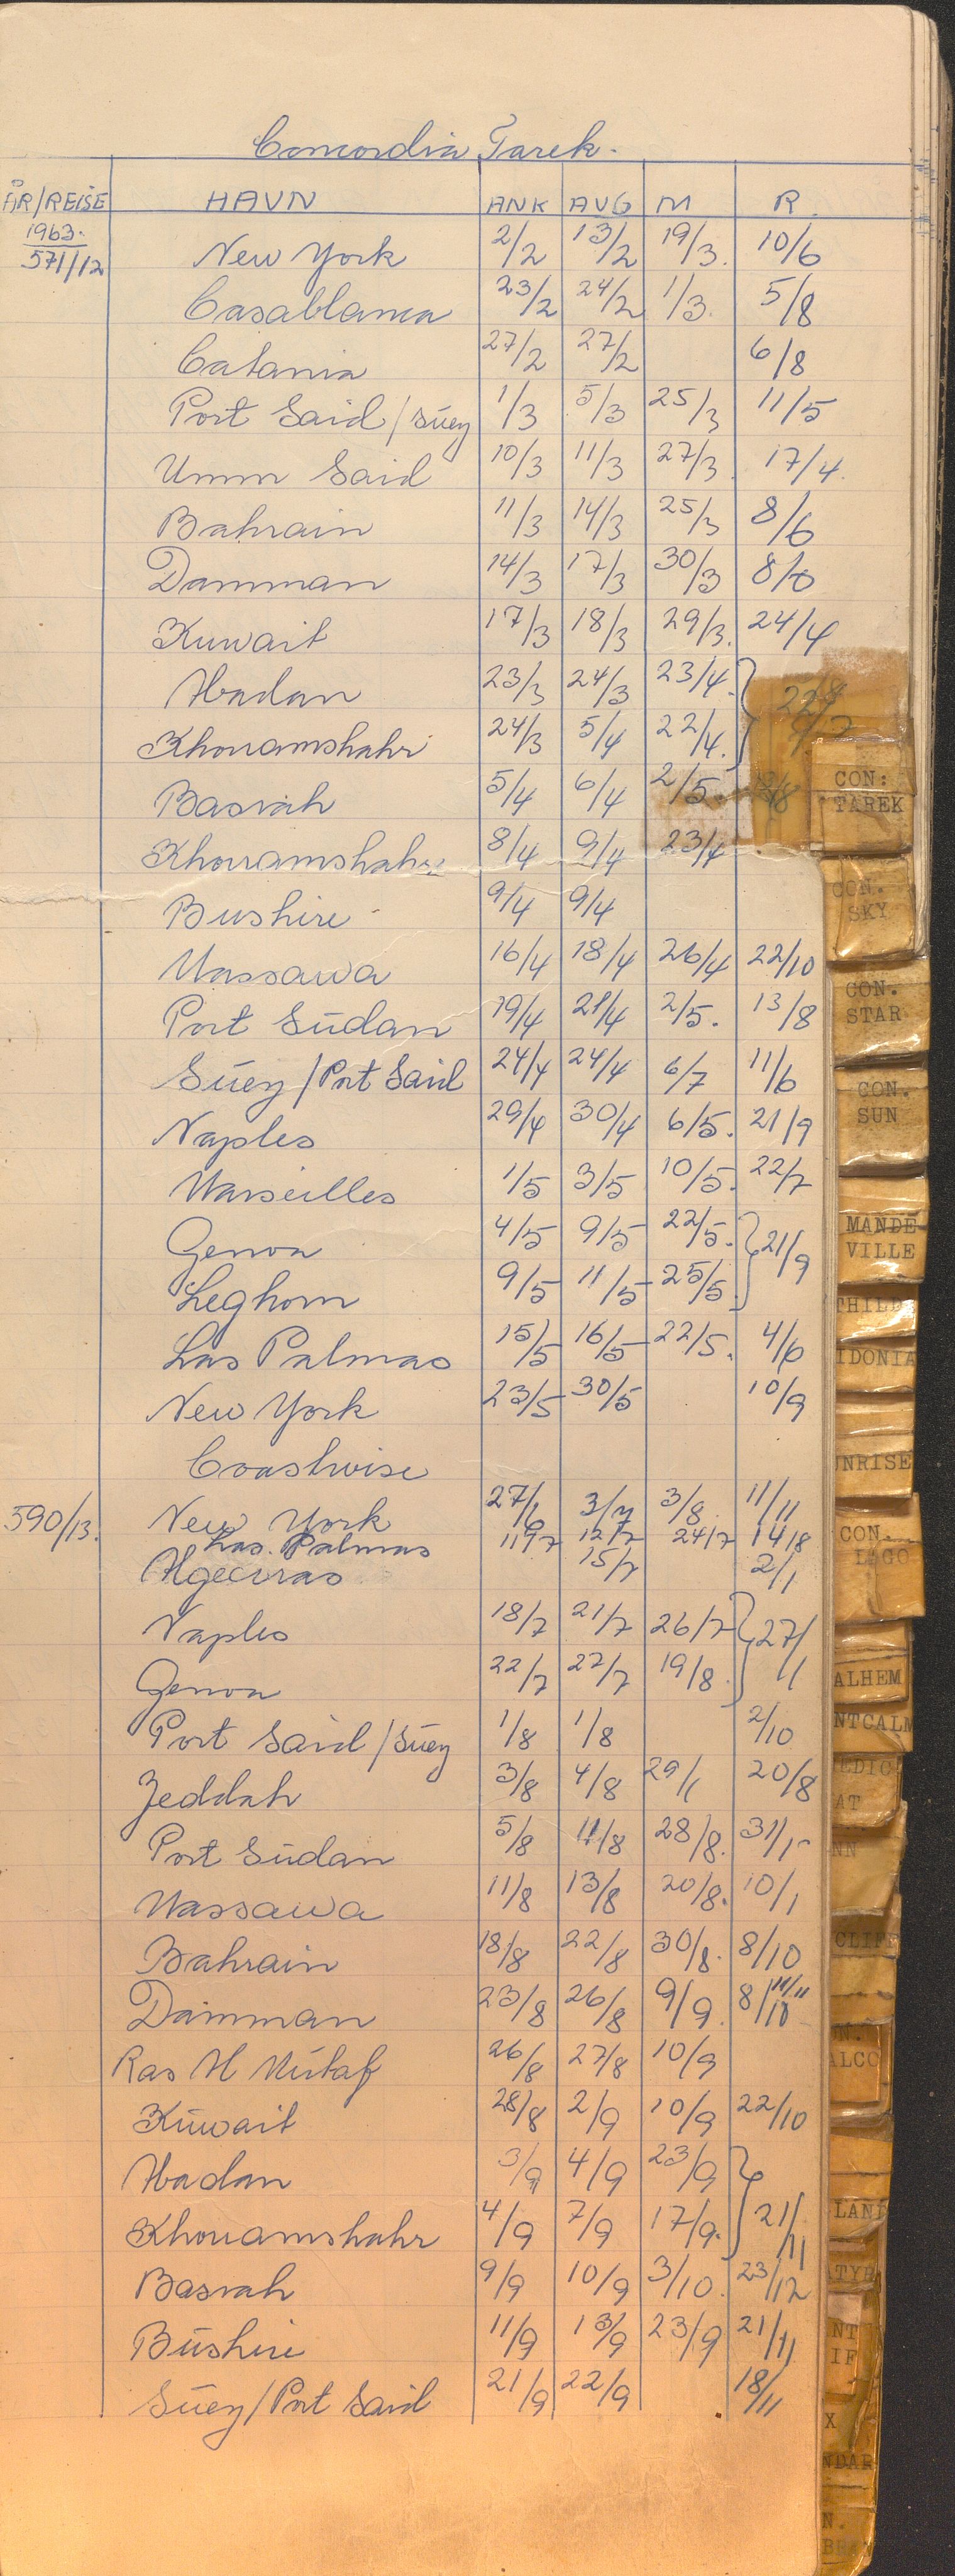 Concordia Tarek.
ÅR/REISE HAVN ANK AVG M R.
1963.
571/12 New York 2/2 13/2 19/3. 10/6
Casablanca 23/2 24/2 1/3. 5/8
Catania 27/2 27/2 6/8
Port Said/Suez 1/3 5/3 25/3 11/5
Umm Said 10/3 11/3 27/3. 17/4.
Bahrain 11/3 14/3 25/3 8/6
Damman 14/3 17/3 30/3 8/6
Kuwait 17/3 18/3 29/3. 24/4
Abadan 23/3 24/3 23/4.
Khorramshahr 24/3 5/4 22/4.
Basrah 5/4 6/4 2/5.
Khorramshahr 8/4 9/4 23/4
Bushire 9/4 9/4
Massawa 16/4 18/4 26/4 22/10
Port Sudan 19/4 21/4 2/5. 13/8
Suez/Port Said 24/4 24/4 6/7 11/6
Naples 29/4 30/4 6/5. 21/9
Marseilles 1/5 3/5 10/5. 22/7
Genoa 4/5 9/5 22/5. } 21/9
Leghorn 9/5 11/5 25/5
Las Palmas 15/5 16/5 22/5. 4/6
New York 23/5 30/5 10/9
Coastwise
590/13. New York 27/6 3/7 3/8. 11/11
Las. Palmas 11/7 12/7 24/7 14/8
Algeciras 15/7 2/1
Naples 18/7 21/7 26/7 } 27/11
Genoa 22/7 27/7 19/8.
Port Said/Suez 1/8 1/8 2/10
Jeddah 3/8 4/8 29/1 20/8
Port Sudan 5/8 11/8 28/8. 31/1-
Massawa 11/8 13/8 20/8. 10/1
Bahrain 18/8 22/8 30/8. 8/10
Damman 23/8 26/8 9/9. 8/10 11/11
Ras Al Mistaf 26/8 27/8 10/9
Kuwait 28/8 2/9 10/9 22/10
Abadan 3/9 4/9 23/9
Khorramshahr 4/9 7/9 17/9. } 21/11
Basrah 9/9 10/9 3/10. 23/12
Bushire 11/9 13/9 23/9 21/11
Suez/Port Said 21/9 22/9 18/11
CON:
TAREK
CON.
SKY
CON.
STAR
CON.
SUN
MANDE-
VILLE
THILD
IDONIA
NRISE
CON.
LAGO
ALHEM
NTCALM
EDIC
AT
NN
CLIF
N.
ALCO
LAND
ATYR
NT
IF
X
NDAR
N.